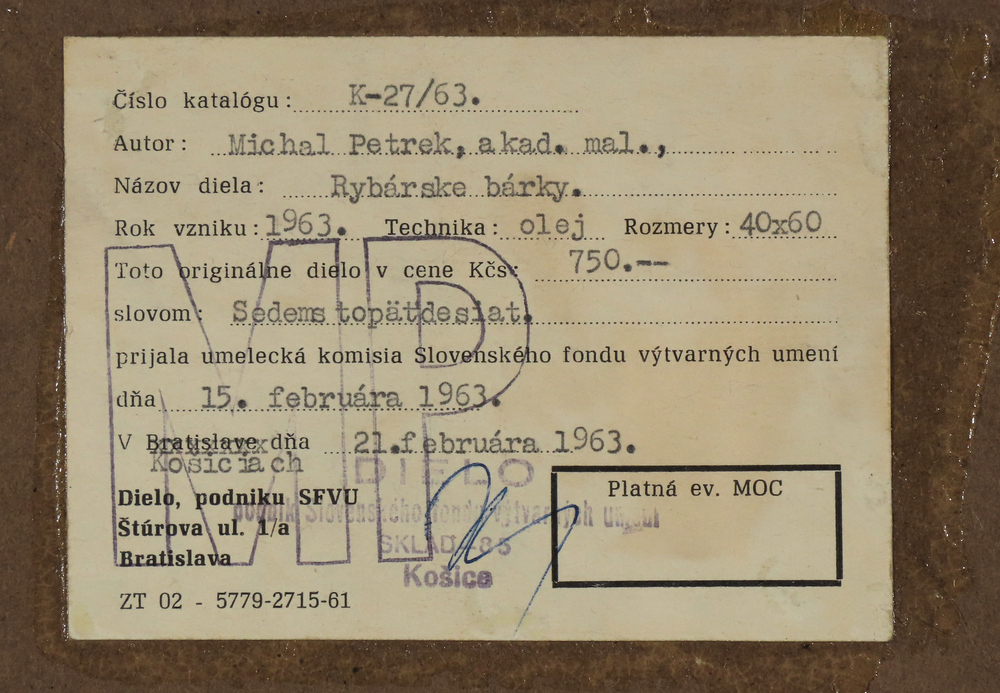 Číslo katalógu: K-27/63.
Autor: Michal Petrek, akad. mal.,
Názov diela: Rybárske bárky.
Rok vzniku: 1963. Technika: olej Rozmery: 40x60
Toto originálne dielo v cene Kčs: 750.--
slovom: Sedemstopäťdesiat.
prijala umelecká komisia Slovenského fondu výtvarných umení
dňa 15. februára 1963.
V Bratislave dňa 21.februára 1963.
Košiciach
MP
DIELO
Platná ev. MOC
Dielo, podniku SFVU
podnik Slovenského fondu výtvarných umení
Štúrova ul. 1/a
SKLAD 485
Bratislava
Košice
ZT 02 - 5779-2715-61